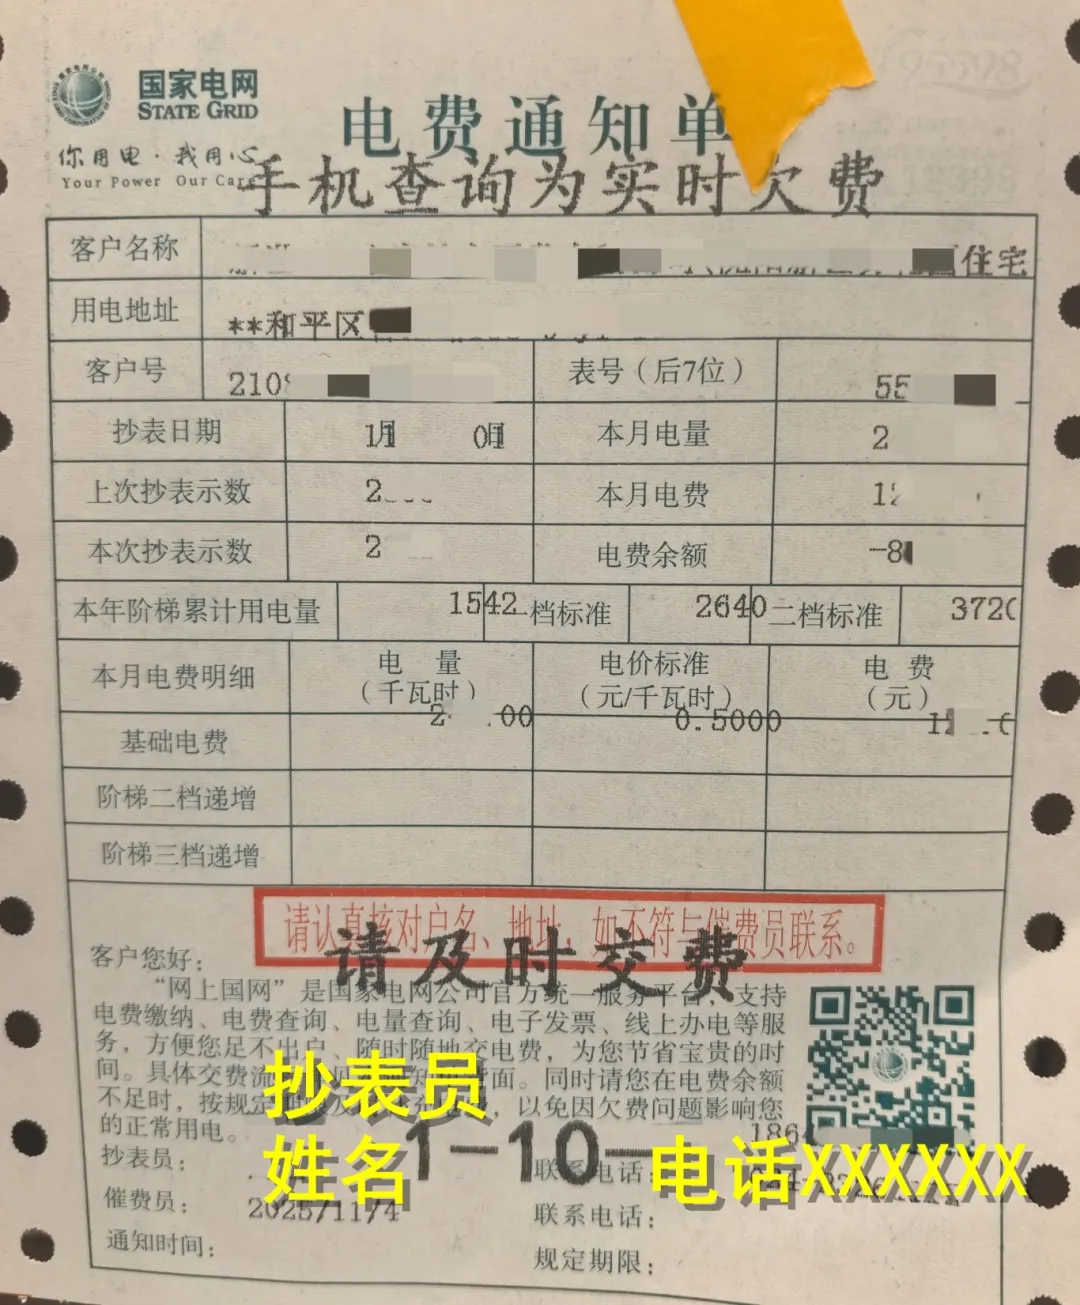 国家电网
STATE GRID
你用电·我用心
Your Power Our Care
95598
电费通知单
手机查询为实时欠费
客户名称 住宅
用电地址 **和平区
客户号 210 表号（后7位） 55
抄表日期 11月 01日 本月电量 2
上次抄表示数 2 本月电费 12
本次抄表示数 2 电费余额 -8
本年阶梯累计用电量 1542 一档标准 2640 二档标准 3720
本月电费明细 电 量 电价标准 电 费
（千瓦时） （元/千瓦时） （元）
基础电费 2 .00 0.5000 12
阶梯二档递增
阶梯三档递增
请认真核对户名、地址，如不符与催费员联系。
请及时交费
客户您好：
“网上国网”是国家电网公司官方统一服务平台，支持
电费缴纳、电费查询、电量查询、电子发票、线上办电等服
务，方便您足不出户、随时随地交电费，为您节省宝贵的时
间。具体交费流 面。同时请您在电费余额
不足时，按规定 ，以免因欠费问题影响您
的正常用电。
抄表员
姓名
1-10
电话XXXXXX
186
抄表员： 联系电话：
催费员： 2025/11/4 联系电话：
通知时间： 规定期限：